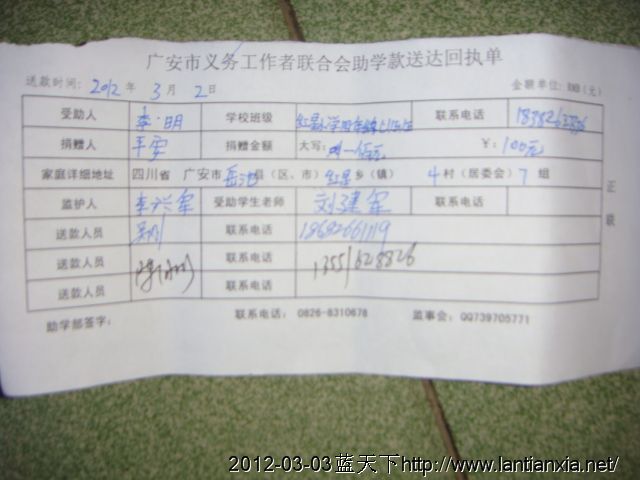 广安市义务工作者联合会助学款送达回执单
送款时间: 2012 年 3 月 2 日 金额单位: RMB (元)
受助人 李·明 学校班级 联系电话
捐赠人 平安 捐赠金额 大写: 一佰元 ¥: 100元
家庭详细地址 四川省 广安市 岳池 县(区、市) 红星 乡(镇) 4 村(居委会) 7 组
监护人 李兴军 受助学生老师 刘建军 联系电话
送款人员 联系电话 18682661119
送款人员 联系电话 13551628826
送款人员 联系电话
正联
助学部签字: 联系电话: 0826-8310678 监事会: QQ739705771
2012-03-03蓝天下http://www.lantianxia.net/